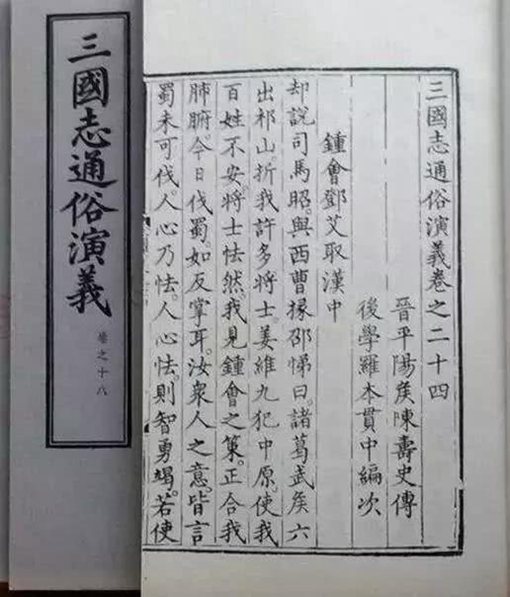 三國志通俗演義
卷之十八
三國志通俗演義卷之二十四
晉平陽侯陳壽史傳
後學羅本貫中編次
鍾會鄧艾取漢中
却說司馬昭與西曹掾邵悌曰諸葛武侯六
出祁山折我許多將士姜維九犯中原使我
百姓不安將士怯然我見鍾會之策正合我
肺腑今日伐蜀如反掌耳汝衆人之意皆言
蜀未可伐人心乃怯人心怯則智勇竭若使